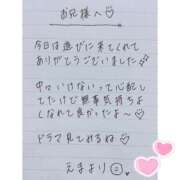 お兄様へ♡
今日は遊びに来てくれて
ありがとうございました
中々いけないって心配し
てたけど無事気持ちよ
くなれて良かったよ〜♡
ドラマ見てみるね♡
えまより